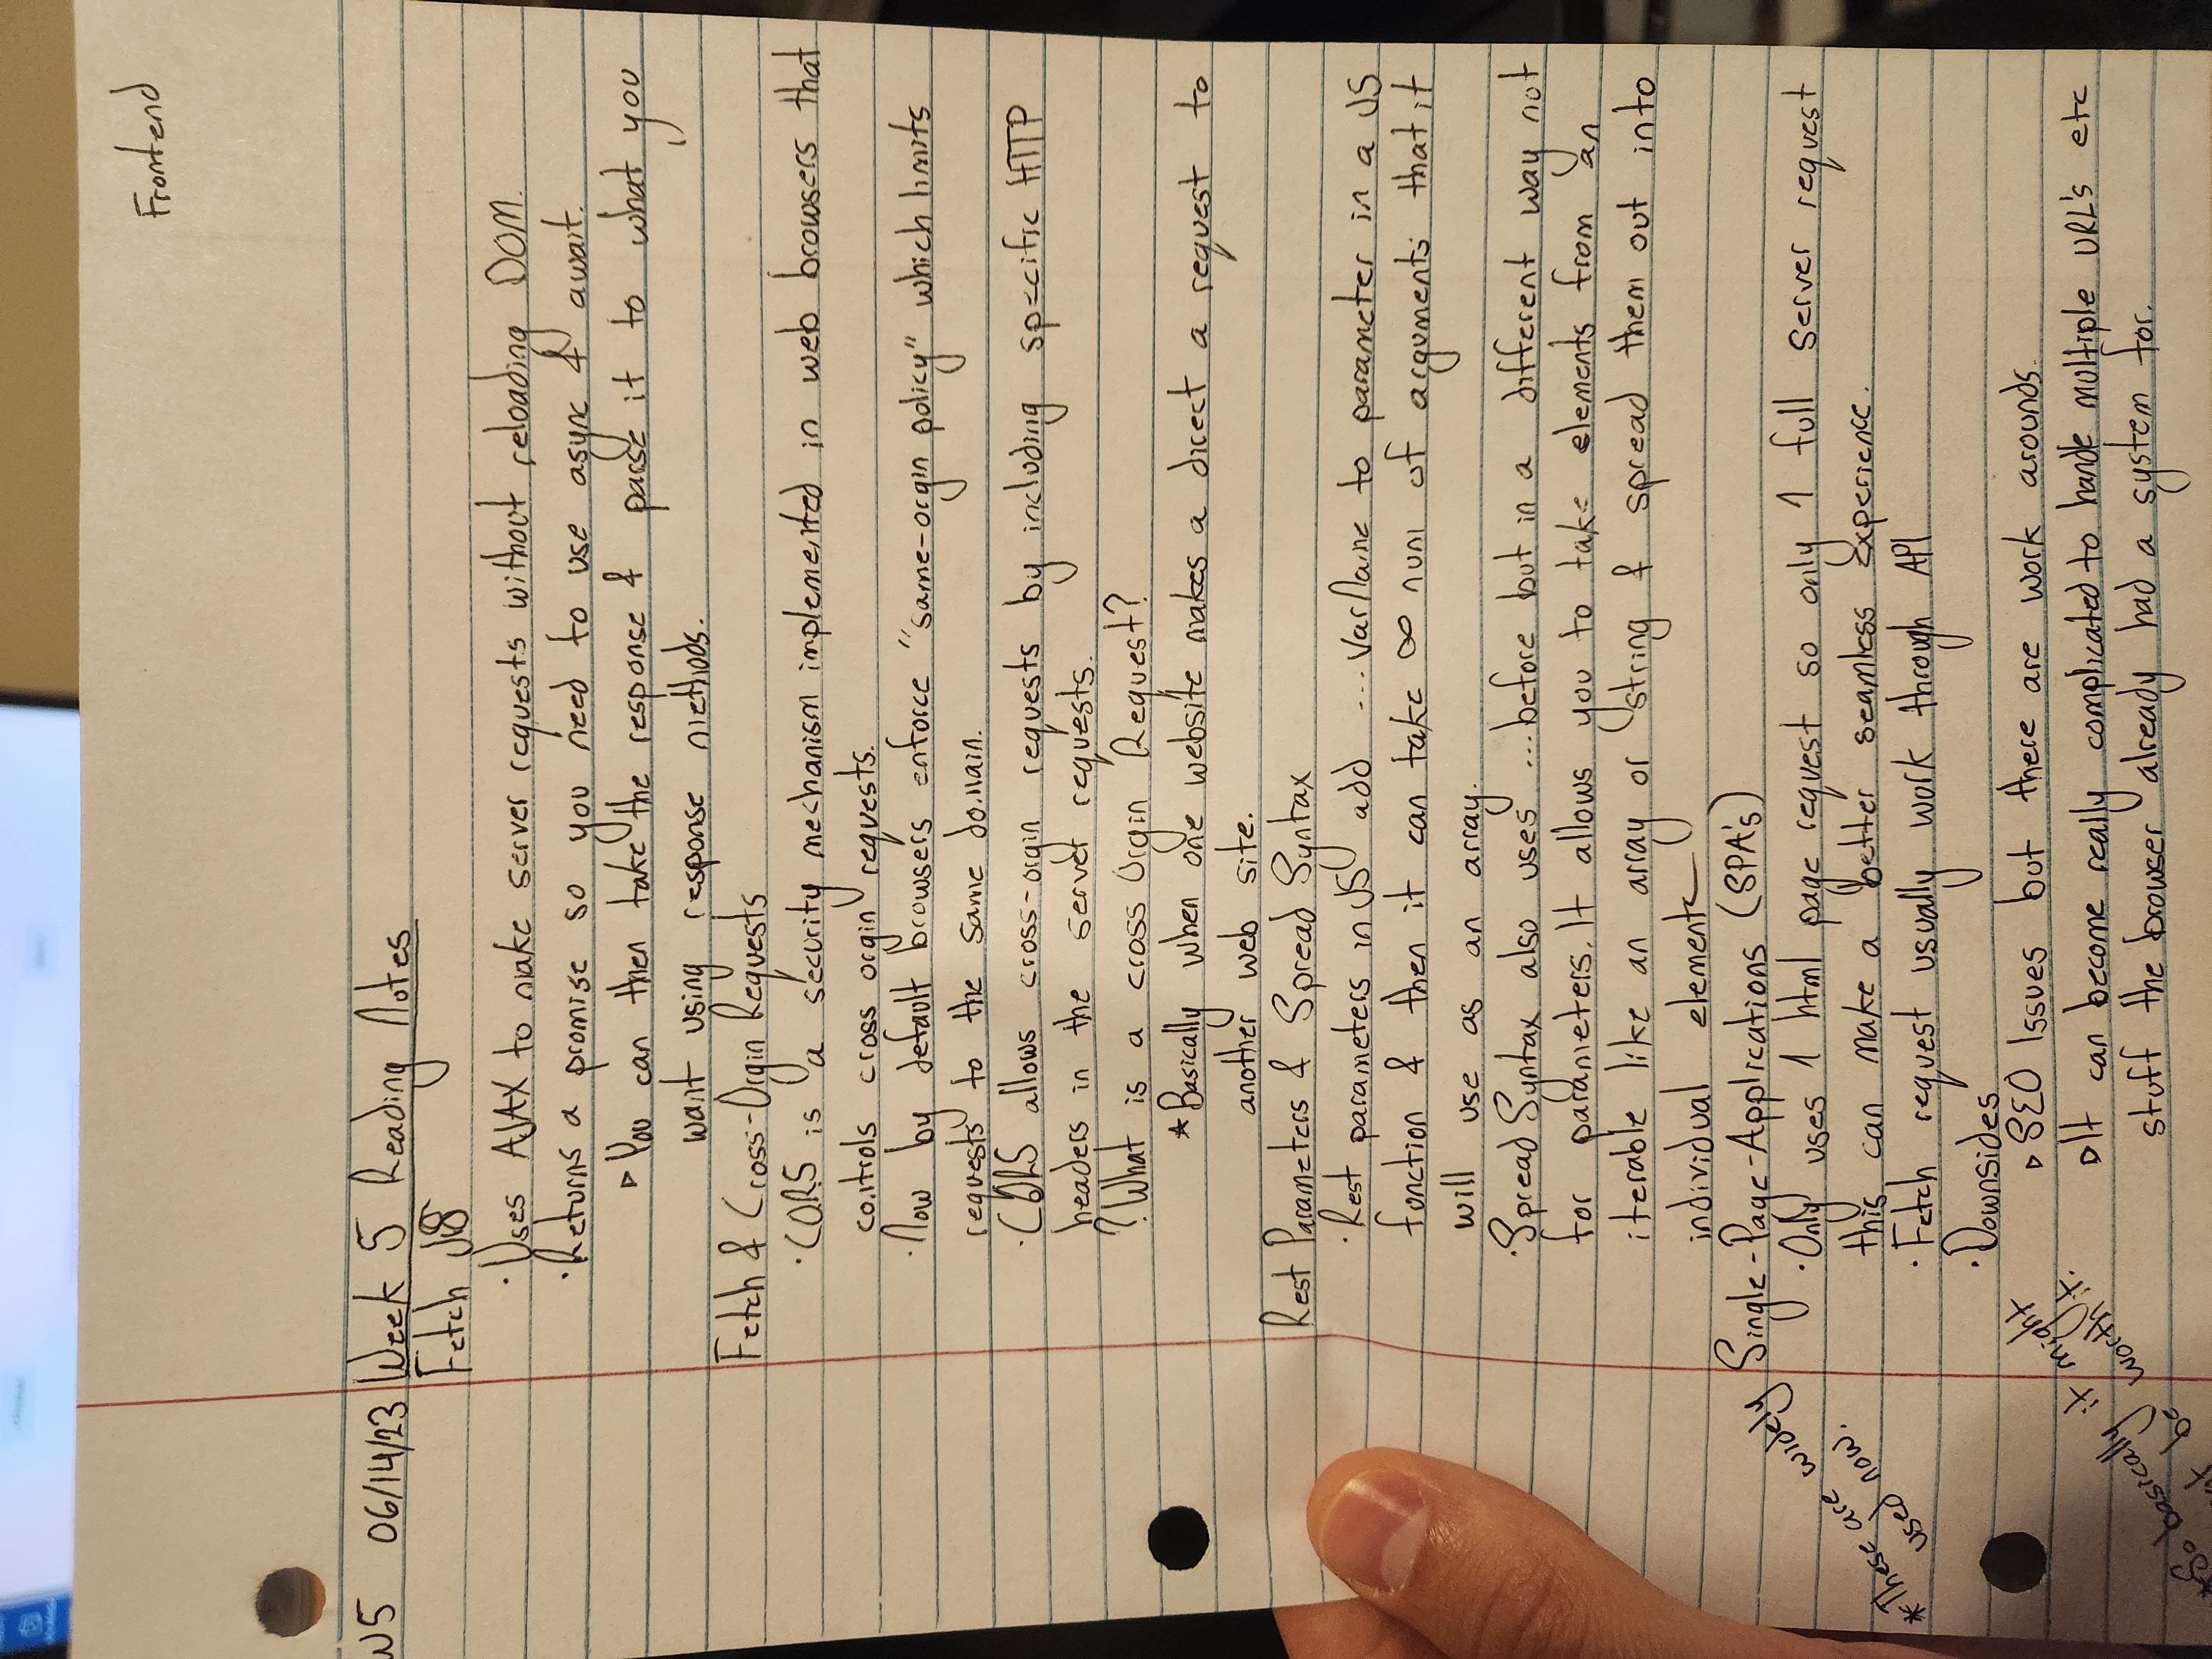 Frontend
W5 06/14/23 Week 5 Reading Notes
Fetch JS
·Uses AJAX to make server requests without reloading DOM.
·Returns a promise so you need to use async & await.
▹You can then take the response & parse it to what you
want using response methods.
Fetch & Cross-Orgin Requests
·CORS is a security mechanism implemented in web browsers that
controls cross orgin requests.
·Now by default browsers enforce "same-orgin policy" which limits
requests to the same domain.
·CORS allows cross-orgin requests by including specific HTTP
headers in the server requests.
?What is a cross Orgin Request?
*Basically when one website makes a direct a request to
another web site.
Rest Parameters & Spread Syntax
·Rest parameters in JS add ...VarName to parameter in a JS
function & then it can take ∞ num of arguments that it
will use as an array.
·Spread Syntax also uses ...before but in a different way not
for parameters. It allows you to take elements from an
iterable like an array or string & spread them out into
individual elements
Single-Page-Applications (SPA's)
*These are widely
used now.
·Only uses 1 html page request so only 1 full server request
this can make a better seamless experience.
·Fetch request usually work through API
·Downsides
▹SEO Issues but there are work arounds.
▹It can become really complicated to handle multiple URL's etc
stuff the browser already had a system for.
*So basically it might
be worth it.